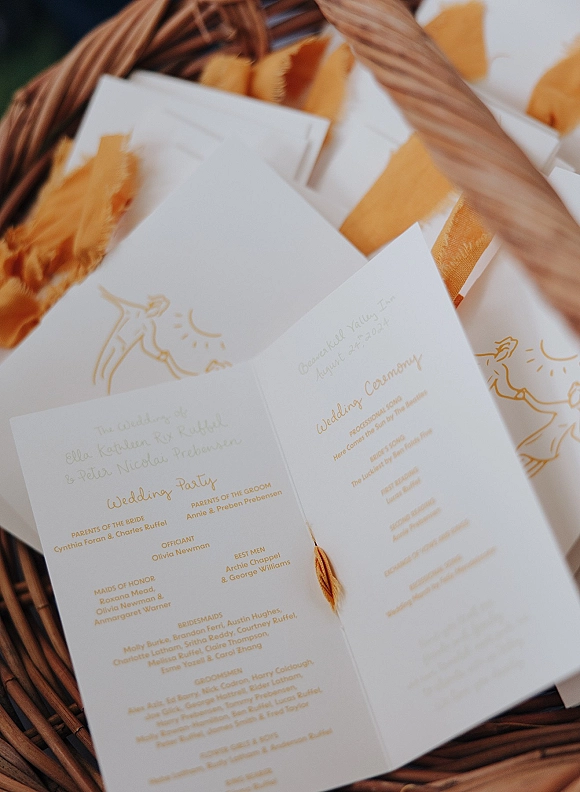 The Wedding of
Ella Kathleen Rix Ruffel
& Peter Nicolai Prebensen
Wedding Party
PARENTS OF THE BRIDE
Cynthia Foran & Charles Ruffel
PARENTS OF THE GROOM
Annie & Preben Prebensen
OFFICIANT
Olivia Newman
MAIDS OF HONOR
Roxana Mead,
Olivia Newman &
Anmargaret Warner
BEST MEN
Archie Chappel
& George Williams
BRIDESMAIDS
Molly Burke, Brandon Ferri, Austin Hughes,
Charlotte Latham, Sritha Reddy, Courtney Ruffel,
Melissa Ruffel, Claire Thompson,
Esme Yazell & Carol Zhang
GROOMSMEN
Alex Aziz, Ed Barry, Nick Codron, Harry Colclough,
Joe Glick, George Haltrell, Rider Latham,
Harry Prebensen, Tommy Prebensen,
Molly Rowden Hamilton, Ben Ruffel, Lucas Ruffel,
Peter Ruffel, James Smith & Fred Taylor
FLOWER GIRLS & BOYS
Latham, Rudy Latham & Anderson Ruffel
RING BEARER
Valley Inn
August 24th
Wedding Ceremony
PROCESSIONAL SONG
Here Comes the Sun by The Beatles
BRIDE'S SONG
The Luckiest by Ben Folds Five
FIRST READING
Lucas Ruffel
SECOND READING
Prebensen
EXCHANGE OF VOWS AND RINGS
RECESSIONAL SONG
Wedding March by Felix Mendelssohn